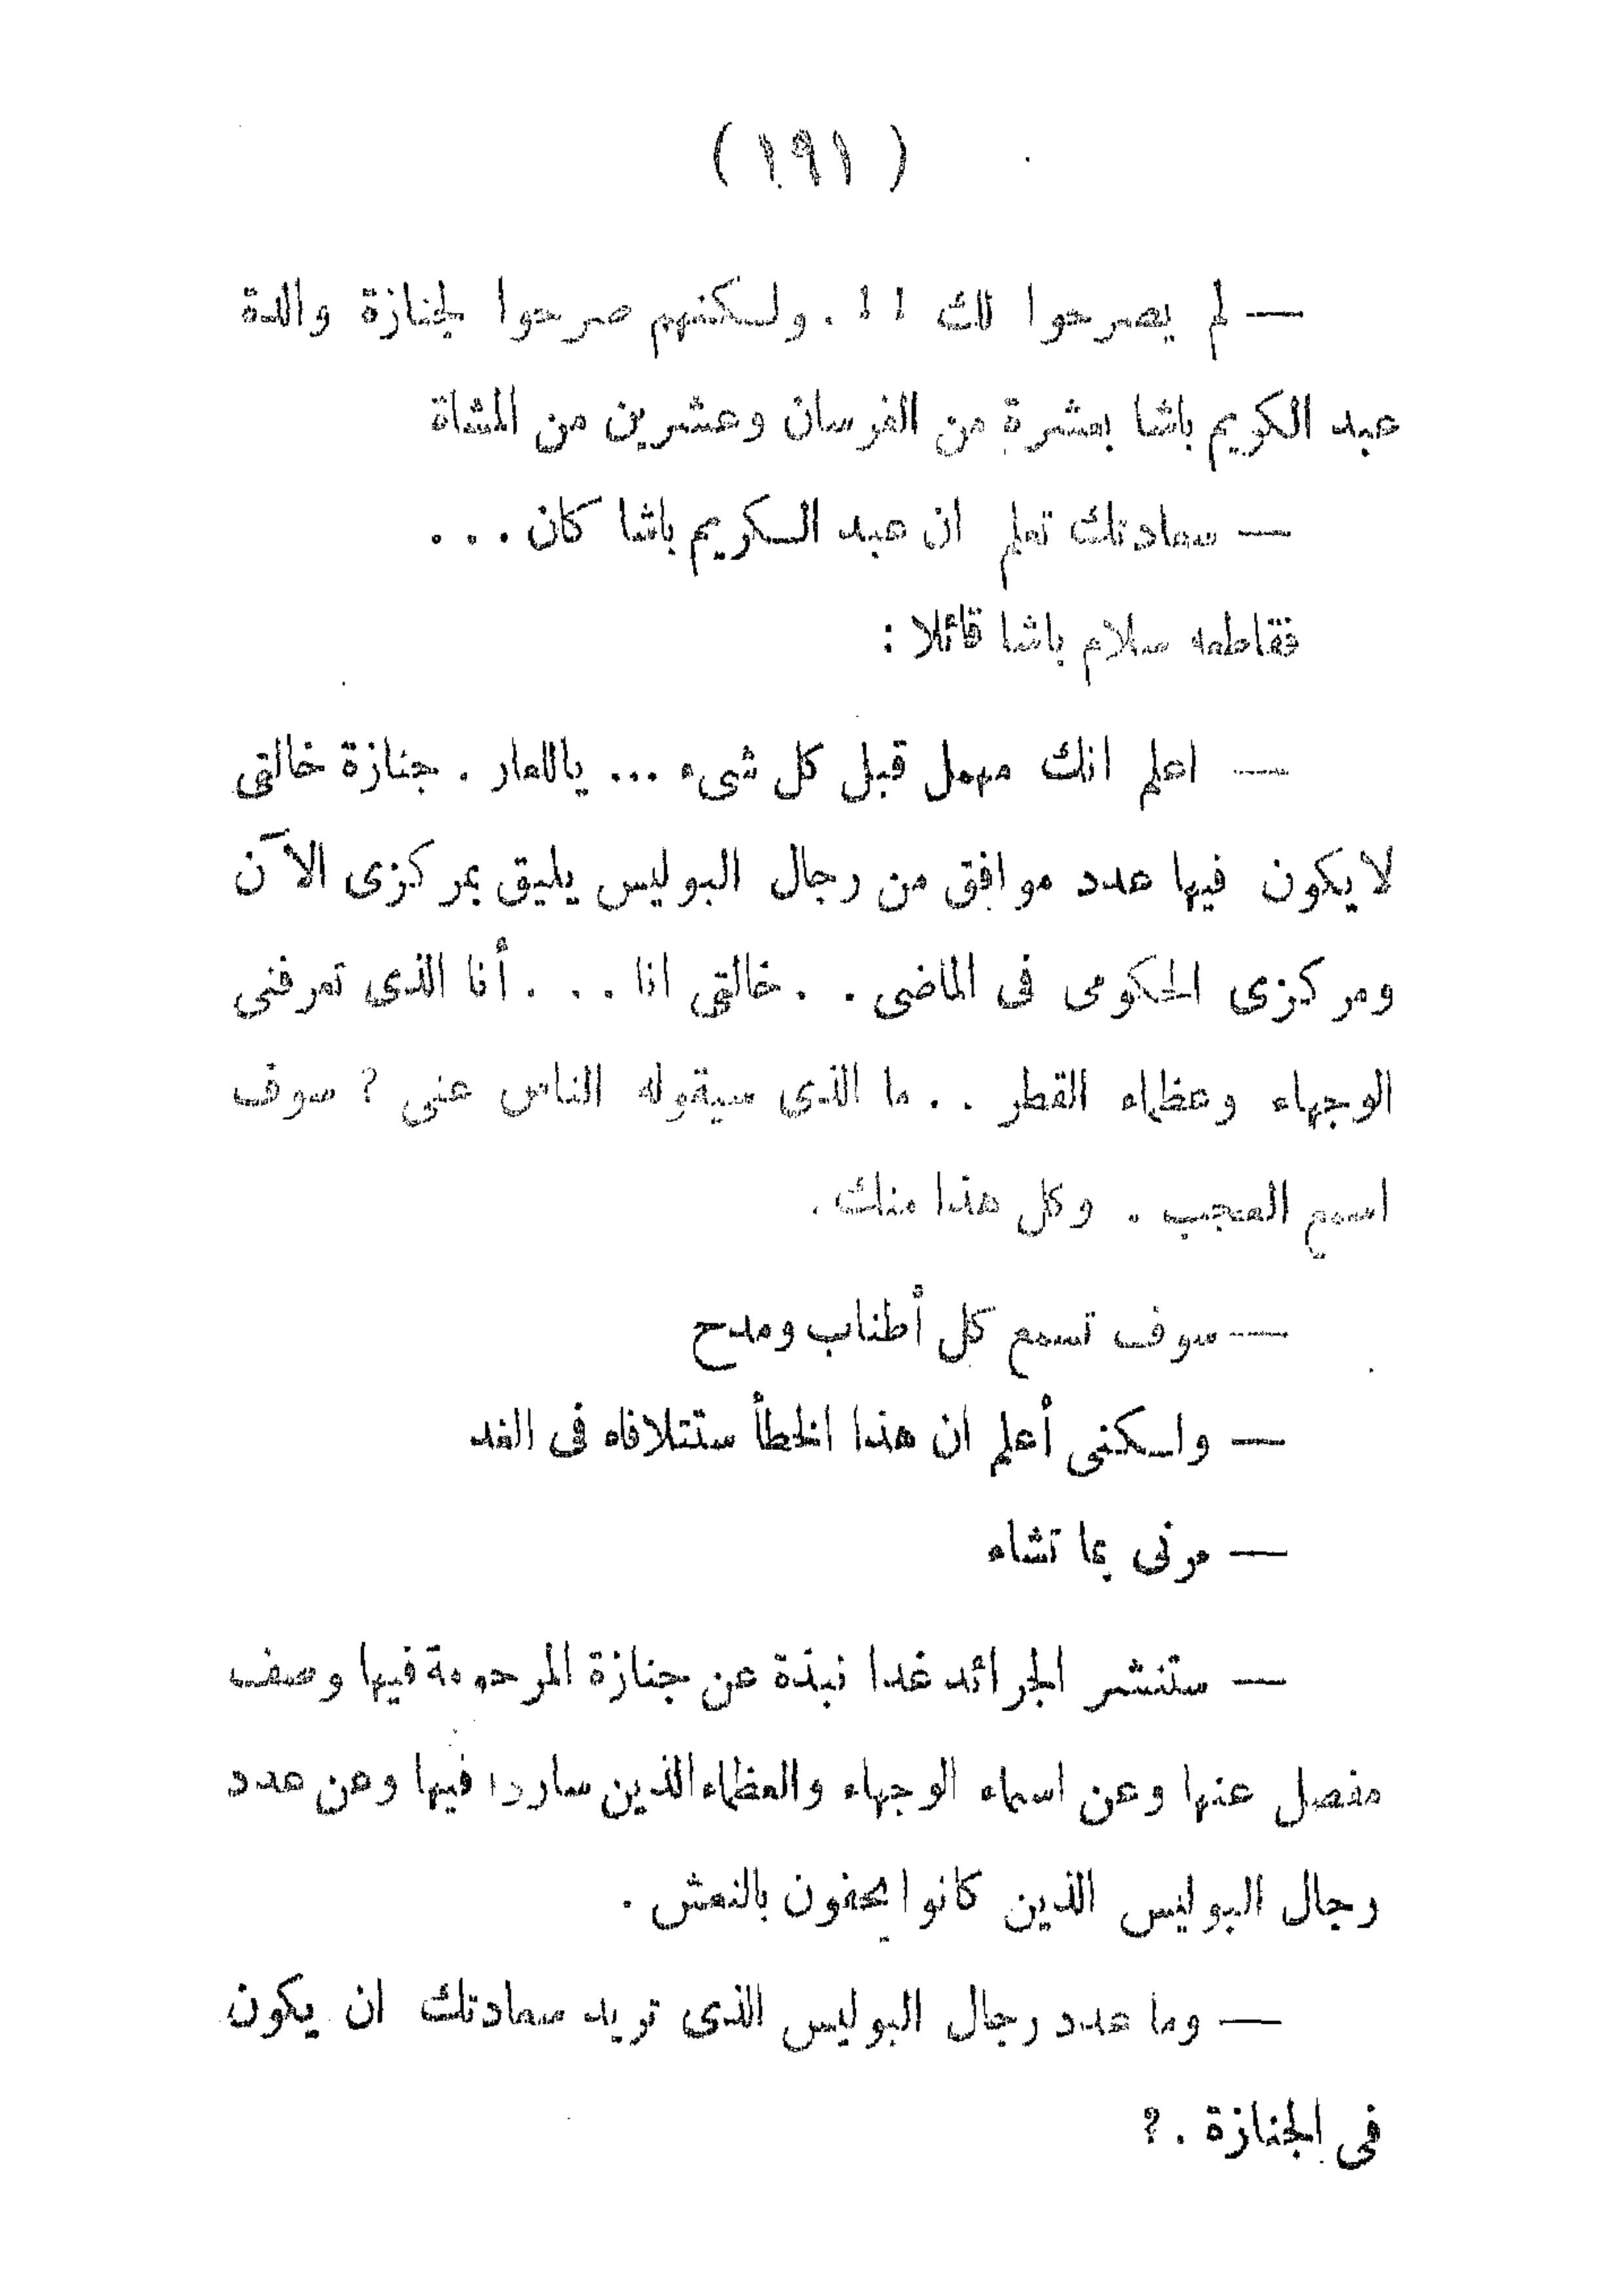 ( ١٩١ )
— لم يصرحوا لك !! . ولكنهم صرحوا لجنازة والدة
عبد الكريم باشا بعشرة من الفرسان وعشرين من المشاة
— سعادتك تعلم ان عبد الكريم باشا كان . . .
فقاطعه سلام باشا قائلا :
— اعلم انك مهمل قبل كل شىء ... ياللعار . جنازة خالتى
لا يكون فيها عدد موافق من رجال البوليس يليق بمركزى الآن
ومركزى الحكومى فى الماضى . . خالتى انا . . . أنا الذى تعرفنى
الوجهاء وعظماء القطر . . ما الذى سيقوله الناس عنى ? سوف
اسمع العجب . وكل هذا منك .
— سوف تسمع كل أطناب ومدح
— ولكنى أعلم ان هذا الخطأ ستتلافاه فى الغد
— مرنى بما تشاء
— ستنشر الجرائد غدا نبذة عن جنازة المرحومة فيها وصف
مفصل عنها وعن اسماء الوجهاء والعظماء الذين ساروا فيها وعن عدد
رجال البوليس الذين كانوا يحفون بالنعش .
— وما عدد رجال البوليس الذى تريد سعادتك ان يكون
فى الجنازة . ?